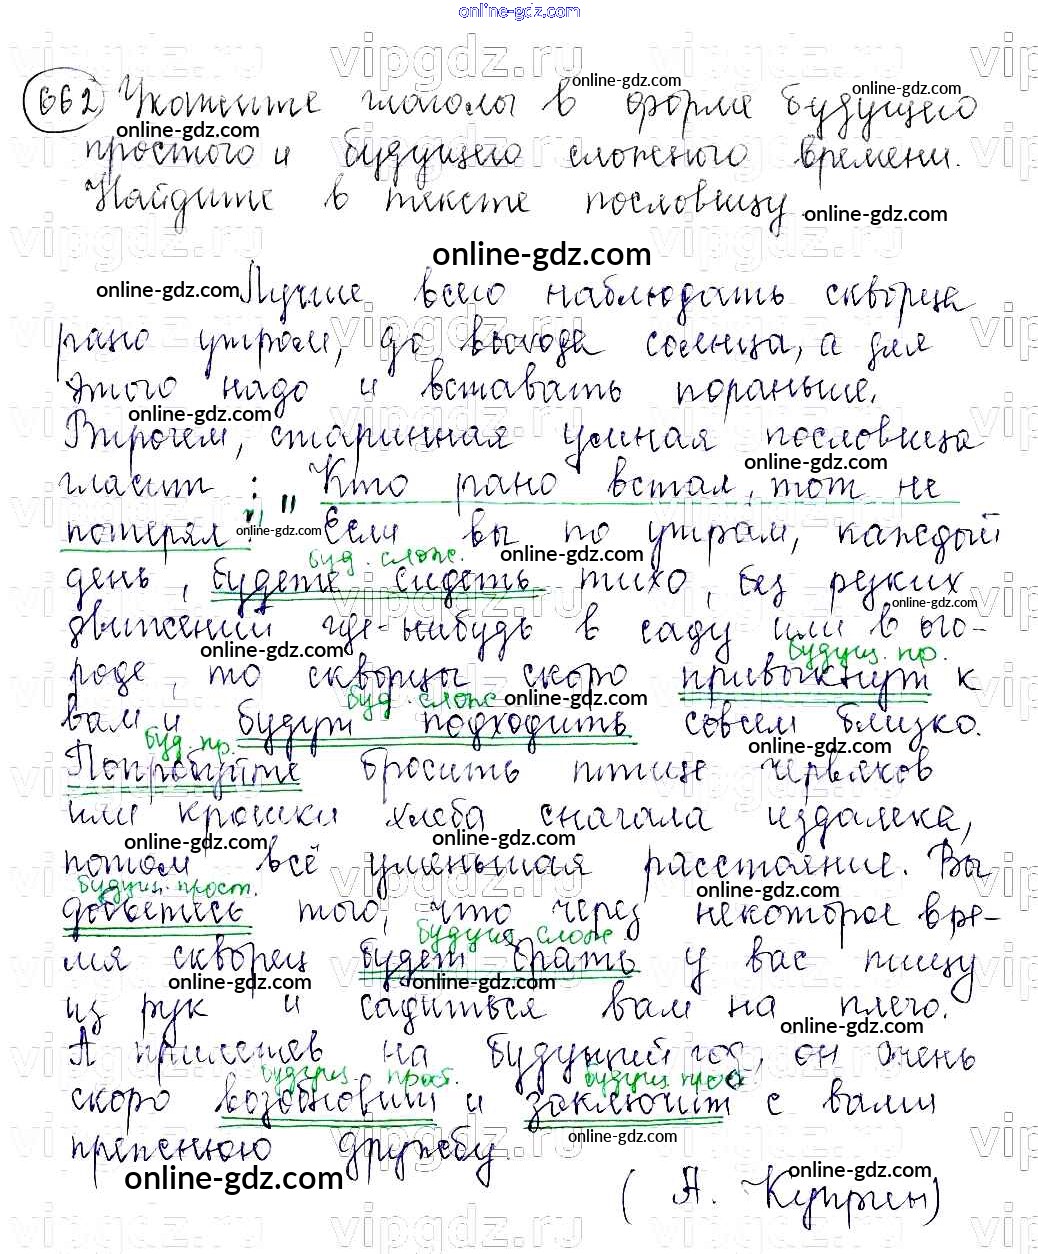 online-gdz.com
662 Укажите глаголы в форме будущего
простого и будущего сложного времени.
Найдите в тексте пословицу.
online-gdz.com
Лучше всего наблюдать скворца
рано утром, до выхода солнца, а для
этого надо и вставать пораньше.
Впрочем, старинная умная пословица
гласит: „Кто рано встал, тот не
потерял". Если вы по утрам, каждый
буд. слож.
день, будете сидеть тихо, без резких
движений где-нибудь в саду или в ого-
будущ. пр.
роде, то скворцы скоро привыкнут к
буд. слож
вам и будут подходить совсем близко.
буд пр.
Попробуйте бросить птице червяков
или крошки хлеба сначала издалека,
потом всё уменьшая расстояние. Вы
будущ. прост.
добьетесь того, что через некоторое вре-
будущ слож
мя скворец будет брать у вас пищу
из рук и садиться вам на плечо.
А прилетев на будущий год, он очень
будущ прост. будущ прост
скоро возобновит и заключит с вами
прежнюю дружбу.
online-gdz.com
(А. Куприн)